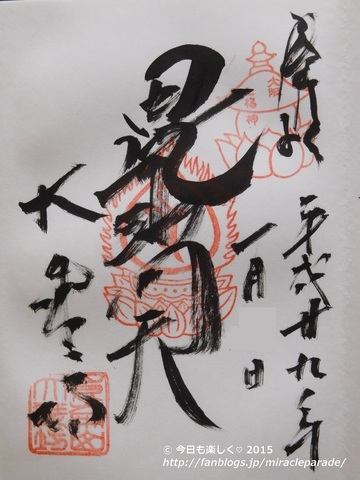 奉拝
平成廿九年
一月 日
毘沙門天
大乗坊
大阪
福神
© 今日も楽しく♡ 2015
http://fanblogs.jp/miracleparade/